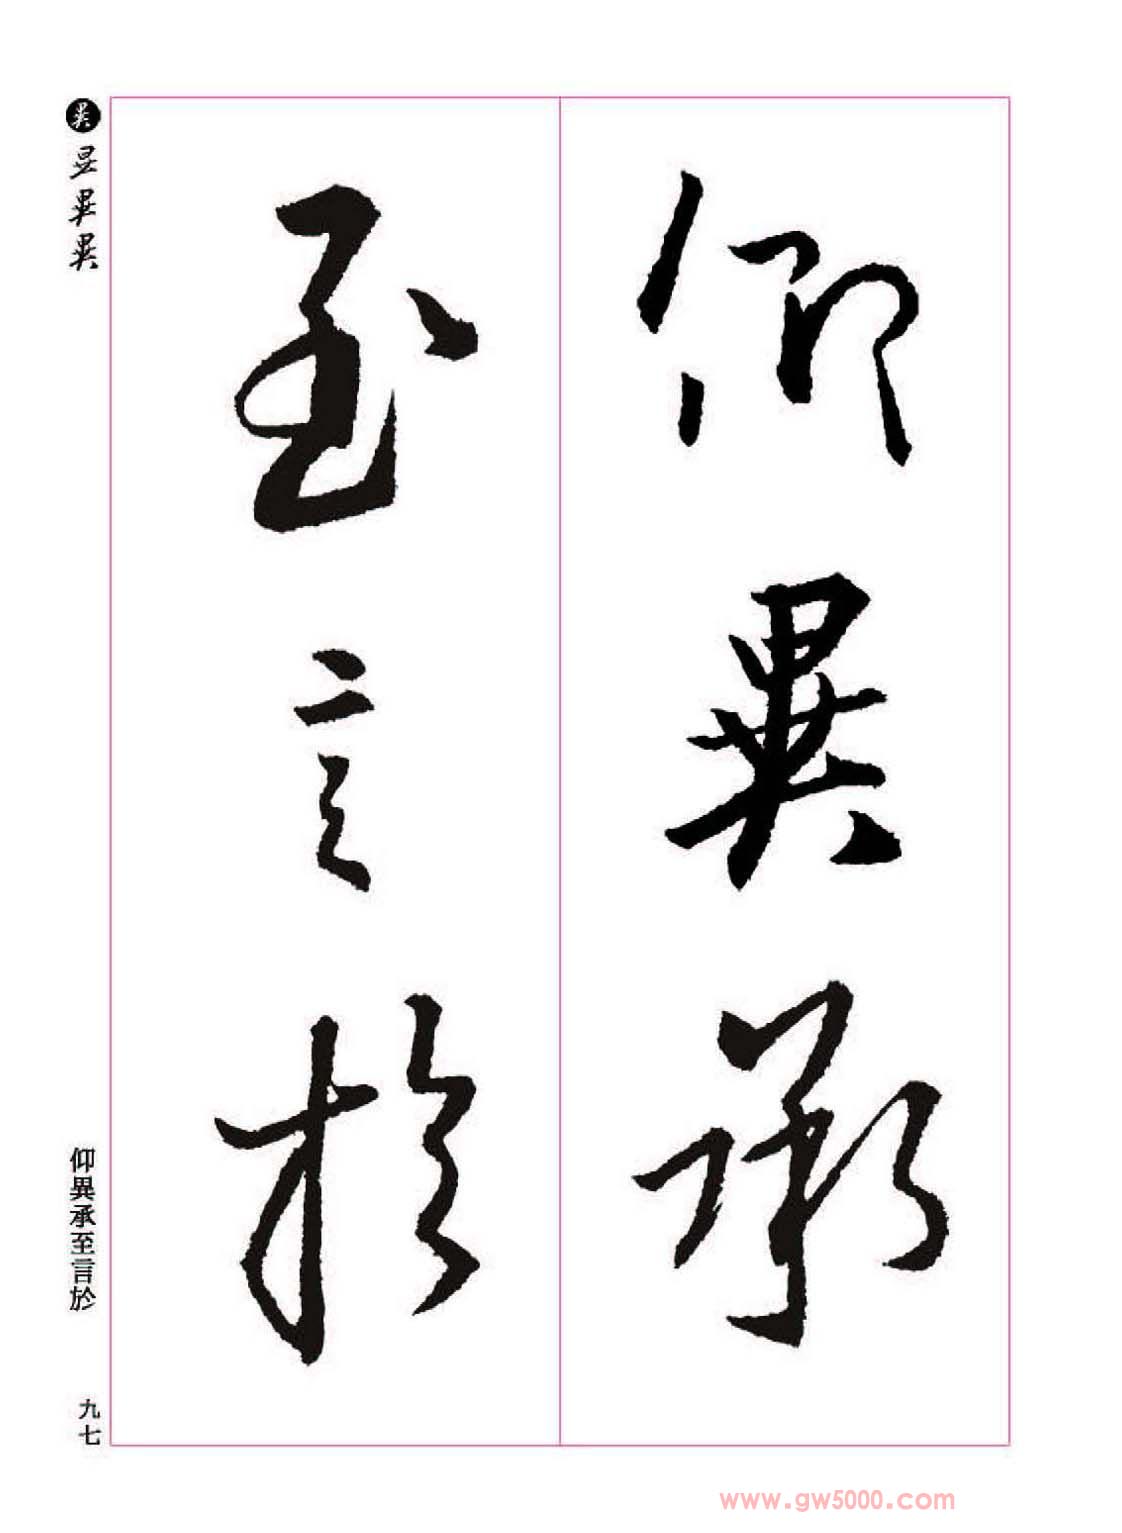 仰異承
至言於
異
仰異承至言於
九七
www.gw5000.com